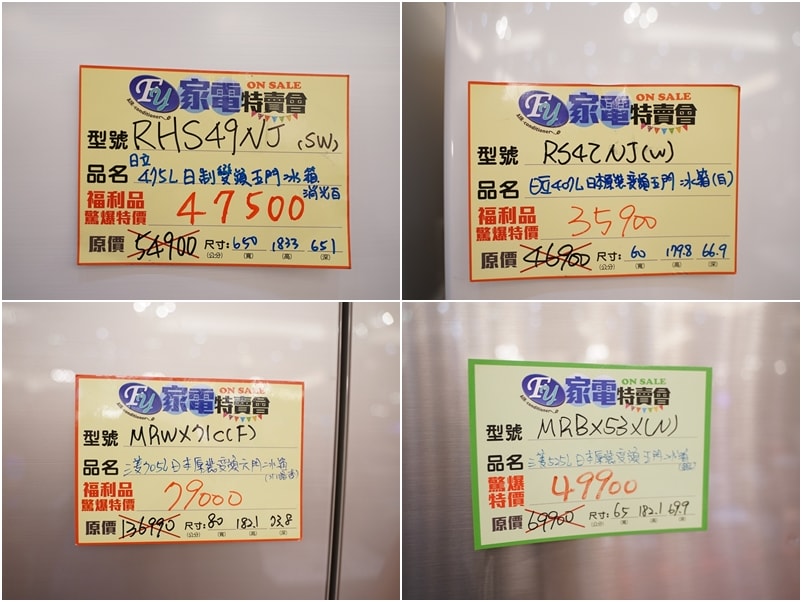 Fu 家電特賣會 ON SALE
Air conditioner
型號 RHS49NJ (SW)
品名 日立 475L日制變頻五門冰箱 消光白
福利品
驚爆特價 47500
原價 54900 尺寸:(公分) 650 (寬) 1833 (高) 651 (深)
Fu 家電特賣會 ON SALE
Air conditioner
型號 RS42NJ(W)
品名 日立407L日本原裝變頻五門冰箱(白)
福利品
驚爆特價 35900
原價 46900 尺寸:(公分) 60 (寬) 179.8 (高) 66.9 (深)
Fu 家電特賣會 ON SALE
Air conditioner
型號 MRWX71C(F)
品名 三菱705L日本原裝變頻六門冰箱
福利品
驚爆特價 79000
原價 136990 尺寸:(公分) 80 (寬) 182.1 (高) 73.8 (深)
Fu 家電特賣會 ON SALE
Air conditioner
型號 MRBX53X(N)
品名 三菱525L日本原裝變頻五門冰箱
驚爆
特價 49900
原價 69900 尺寸:(公分) 65 (寬) 182.1 (高) 69.9 (深)